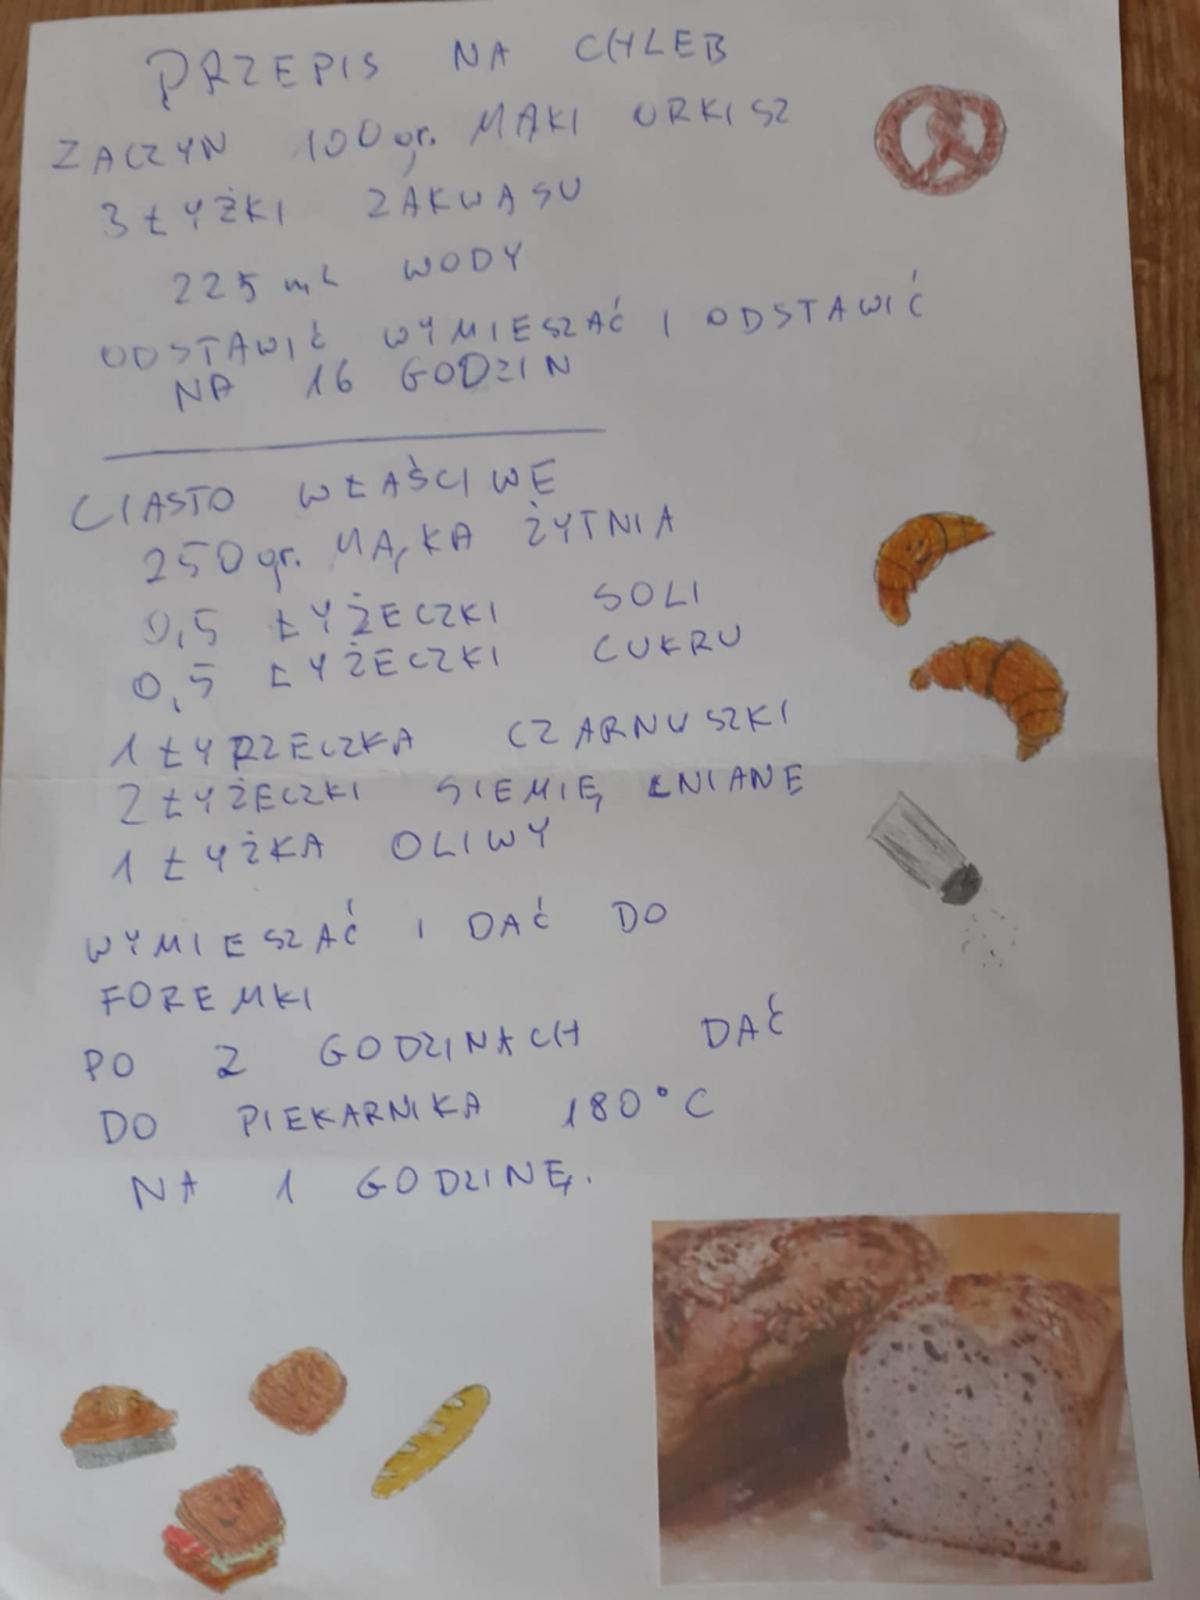 PRZEPIS NA CHLEB
ZACZYN 100 gr. MĄKI ORKISZ
3 ŁYŻKI ZAKWASU
225 mL WODY
ODSTAWIĆ WYMIESZAĆ I ODSTAWIĆ
NA 16 GODZIN
CIASTO WŁAŚCIWE
250 gr. MĄKA ŻYTNIA
0,5 ŁYŻECZKI SOLI
0,5 ŁYŻECZKI CUKRU
1 ŁYRZECZKA CZARNUSZKI
2 ŁYŻECZKI SIEMIĘ LNIANE
1 ŁYŻKA OLIWY
WYMIESZAĆ I DAĆ DO
FOREMKI
PO 2 GODZINACH DAĆ
DO PIEKARNIKA 180°C
NA 1 GODZINĘ.